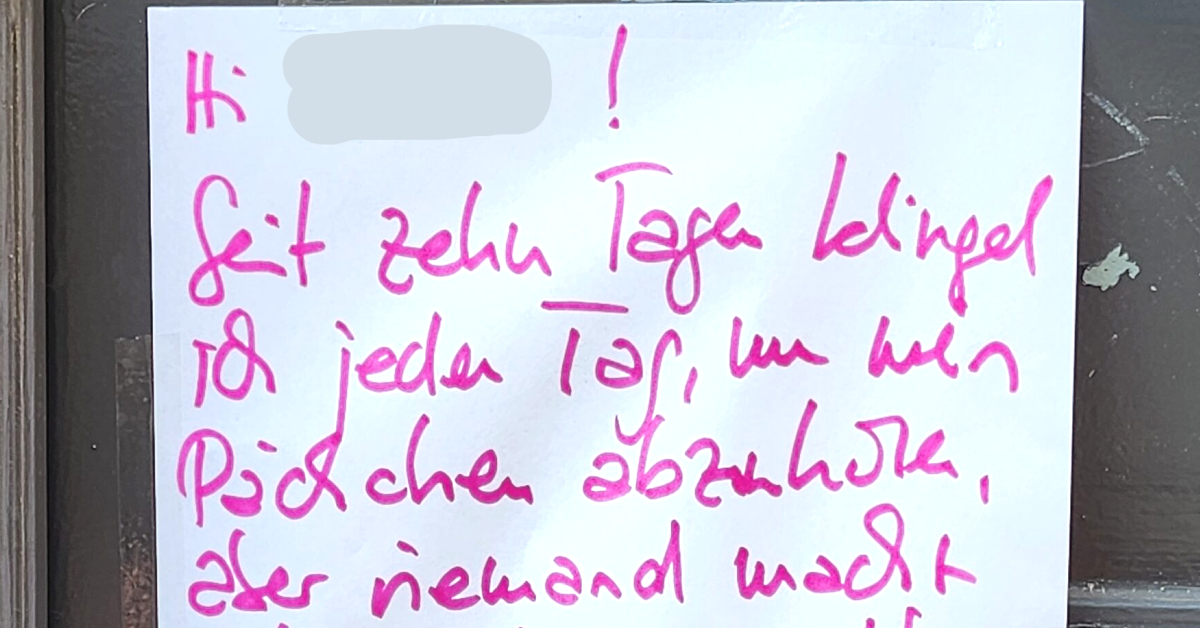 Hi !
Seit zehn Tagen klingel
ich jeden Tag, um mein
Päckchen abzuholen,
aber niemand macht